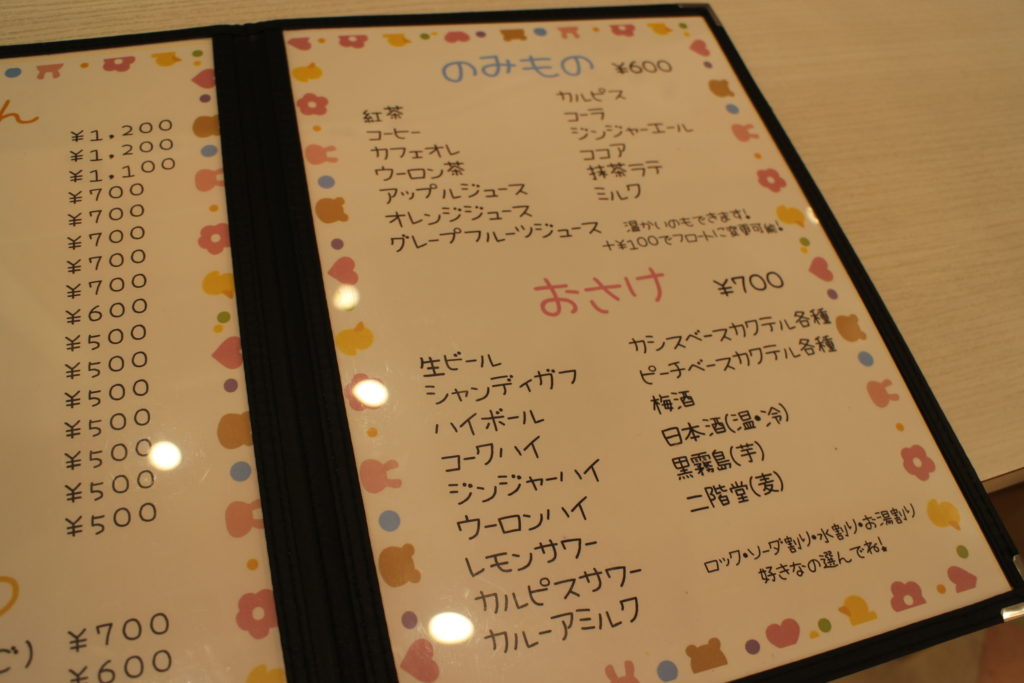 ん
¥1.200
¥1.200
¥1.100
¥700
¥700
¥700
¥700
¥700
¥600
¥500
¥500
¥500
¥500
¥500
¥500
¥500
の
ご)
¥700
¥600
のみもの ¥600
紅茶
コーヒー
カフェオレ
ウーロン茶
アップルジュース
オレンジジュース
グレープフルーツジュース
カルピス
コーラ
ジンジャーエール
ココア
抹茶ラテ
ミルク
温かいのもできます!
+¥100でフロートに変更可能!
おさけ ¥700
生ビール
シャンディガフ
ハイボール
コークハイ
ジンジャーハイ
ウーロンハイ
レモンサワー
カルピスサワー
カルーアミルク
カシスベースカクテル各種
ピーチベースカクテル各種
梅酒
日本酒(温・冷)
黒霧島(芋)
二階堂(麦)
ロック・ソーダ割り・水割り・お湯割り
好きなの選んでね!